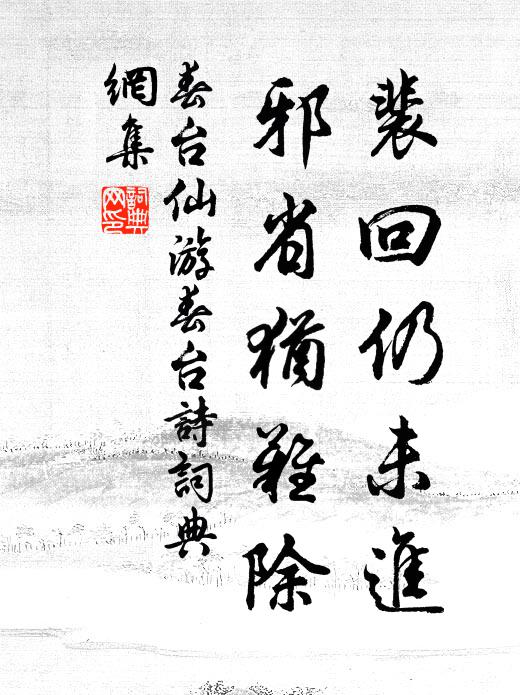 裴回仍未進
邪省猶難除
春台仙游春台詩詞典
網集
詞典
网印